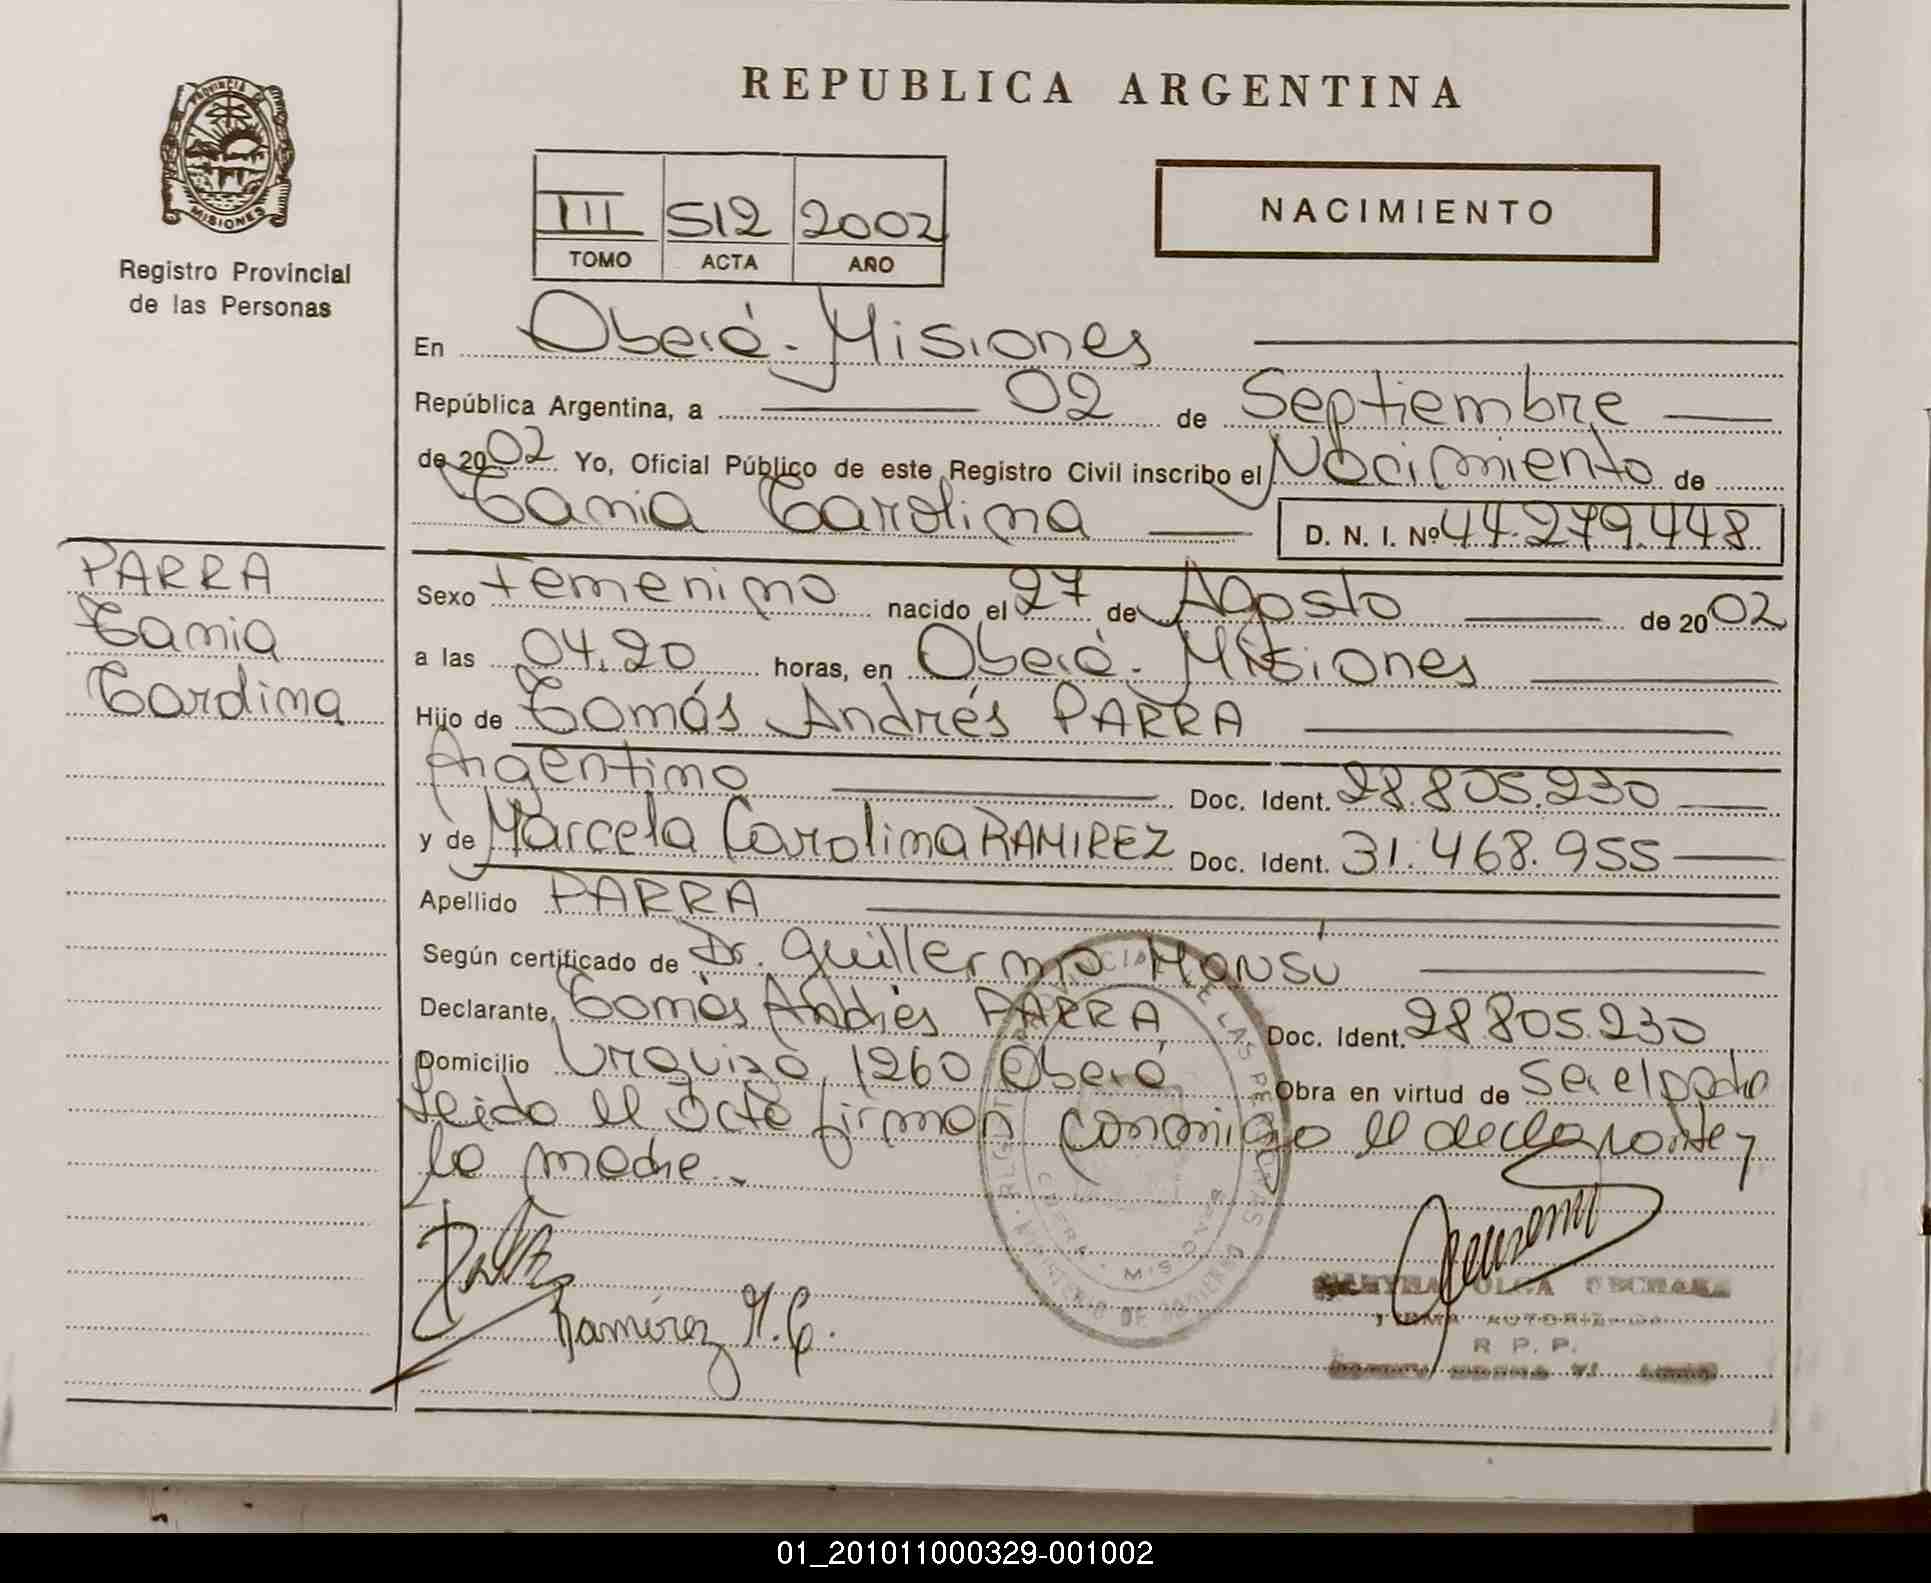 REPUBLICA ARGENTINA
PROVINCIA DE
MISIONES
Registro Provincial
de las Personas
III 512 2002
TOMO ACTA AÑO
NACIMIENTO
En Oberá - Misiones
República Argentina, a 02 de Septiembre
de 2002 Yo, Oficial Público de este Registro Civil inscribo el Nacimiento de
Tania Carolina D. N. I. Nº 44.279.448
PARRA
Tania
Carolina
Sexo Femenino nacido el 27 de Agosto de 2002
a las 04,20 horas, en Oberá - Misiones
Hijo de Tomás Andrés PARRA
Argentino Doc. Ident. 28.805.230
y de Marcela Carolina RAMIREZ Doc. Ident. 31.468.955
Apellido PARRA
Según certificado de Dr. Guillermo MONSÚ
Declarante, Tomás Andrés PARRA Doc. Ident. 28805.230
Domicilio Urquiza 1260 Oberá Obra en virtud de Ser el padre
leido el acta firman conmigo el declarante y
la madre..
Ramírez M.C.
OLGA
FIRMA AUTORIZADA
R. P. P.
01_201011000329-001002